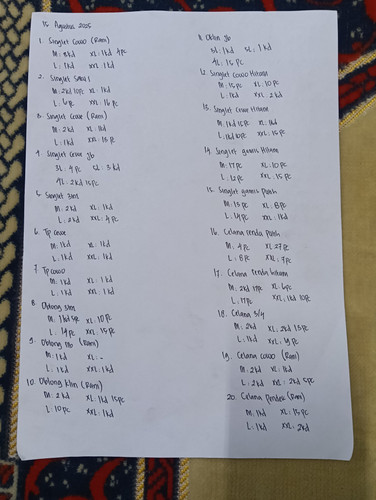 15 Agustus 2025
1. Singlet Cowo (Rami)
M: 3kd XL: 1kd 4pc
L: 1kd XXL: 1kd
2. Singlet
M: 2kd 10pc XL: 1kd
L: 6pc XXL: 16pc
3. Singlet Cewe (Rami)
M: 2kd XL: 1kd
L: 1kd XXL: 15pc
4. Singlet Cewe Jb
3L: 4pc 3kd
4L: 2kd 15pc
5. Singlet
M: 2kd XL: 1kd
L: 2kd XXL: 4pc
6. Tp Cewe
M: 1kd XL: 1kd
L: 1kd XXL: 1kd
7. Tp Cowo
M: 1kd XL: 1kd
L: 1kd XXL: 1kd
8. Oblong
M: 1kd 5pc XL: 10pc
L: 14pc XXL: 15pc
9. Oblong (Rami)
M: 1kd XL: -
L: 1kd XXL: 1kd
10. Oblong (Rami)
M: 2kd XL: 1kd 15pc
L: 10pc XXL: 1kd
11. Jb
3L: 1kd 5L: 1kd
4L: 15pc
12. Singlet Cowo Hitam
M: 15pc XL: 10pc
L: 1kd XXL: 2kd
13. Singlet Cewe Hitam
M: 1kd 15pc XL: 1kd
L: 1kd 10pc XXL: 15pc
14. Singlet gamis Hitam
M: 17pc XL: 10pc
L: 12pc XXL: 15pc
15. Singlet gamis Putih
M: 15pc XL: 8pc
L: 14pc XXL: 1kd
16. Celana renda Putih
M: 4pc XL: 27pc
L: 8pc XXL: 7pc
17. Celana renda hitam
M: 2kd 17pc XL: 6pc
L: 17pc XXL: 1kd 10pc
18. Celana 3/4
M: 2kd XL: 2kd 15pc
L: 1kd XXL: 4pc
19. Celana Cowo (Rami)
M: 2kd XL: 1kd
L: 2kd XXL: 2kd 5pc
20. Celana Pendek (Rami)
M: 1kd XL: 15pc
L: 1kd XXL: 2kd